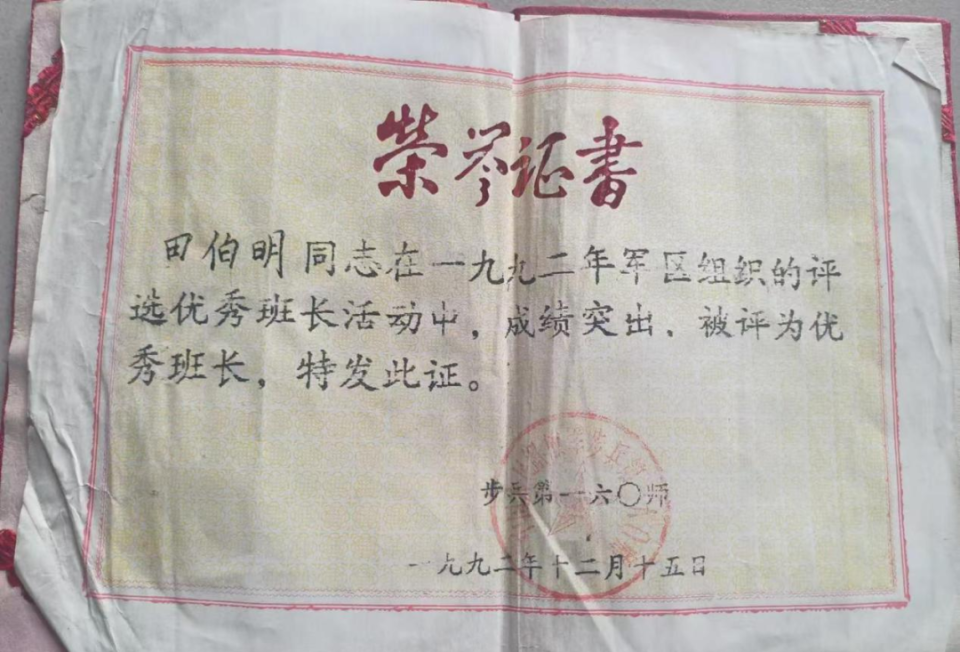 荣誉证书
田伯明同志在一九九二年军区组织的评
选优秀班长活动中，成绩突出，被评为优
秀班长，特发此证。
步兵第一六〇师
一九九二年十二月十五日